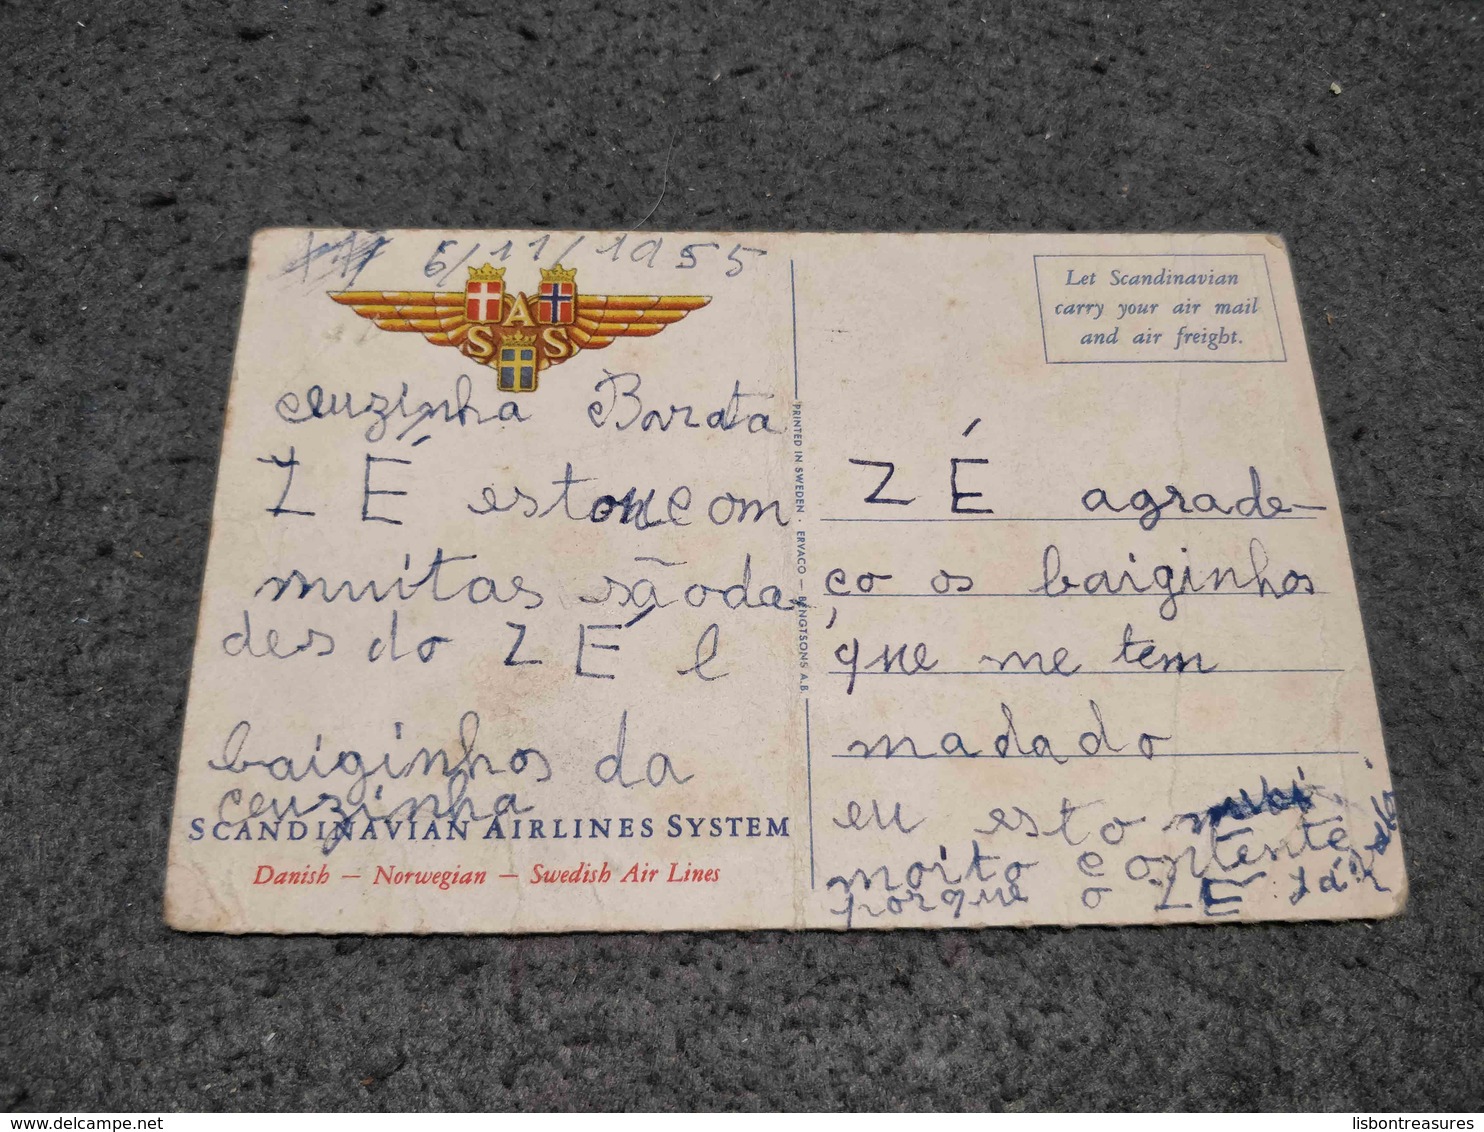 6/11/1955
A
S S
ceuzinha Barata
ZÉ estou com
muitas sãoda-
des do ZÉ e
baiginhos da
ceuzinha
SCANDINAVIAN AIRLINES SYSTEM
Danish — Norwegian — Swedish Air Lines
PRINTED IN SWEDEN · ERVACO — BENGTSONS A.B.
Let Scandinavian
carry your air mail
and air freight.
ZÉ agrade-
ço os baiginhos
que me tem
madado
eu esto
moito contente
porque o ZÉ
lisbontreasures